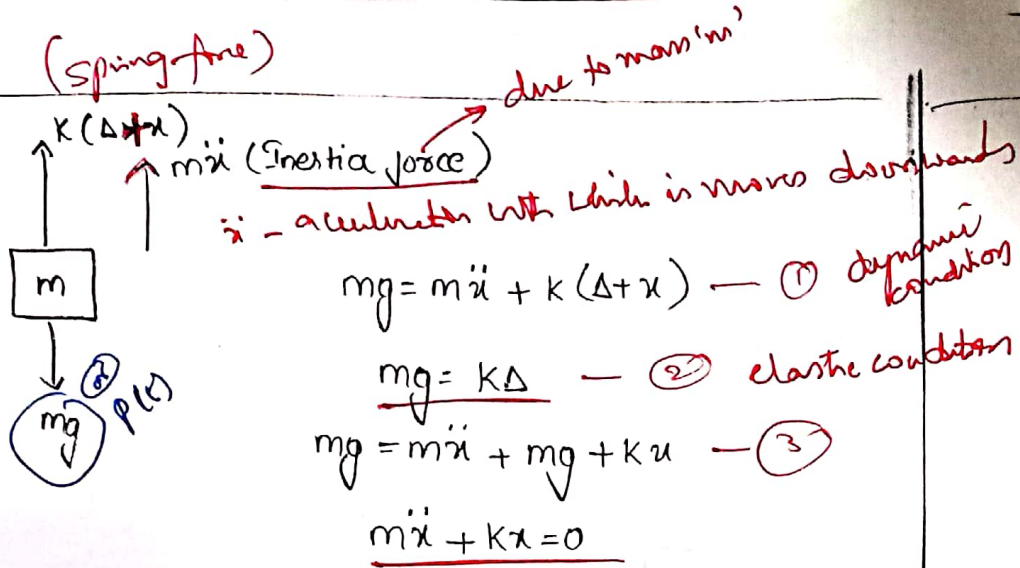 (spring force)
due to mass 'm'
K(Δ+x)
mẍ (Inertia force)
ẍ - acceleration with which is moves downwards
m
mg = mẍ + K(Δ+x) — ① dynamic condition
mg = KΔ — ② elastic condition
mg or P(t)
mg = mẍ + mg + Kx — ③
mẍ + Kx = 0